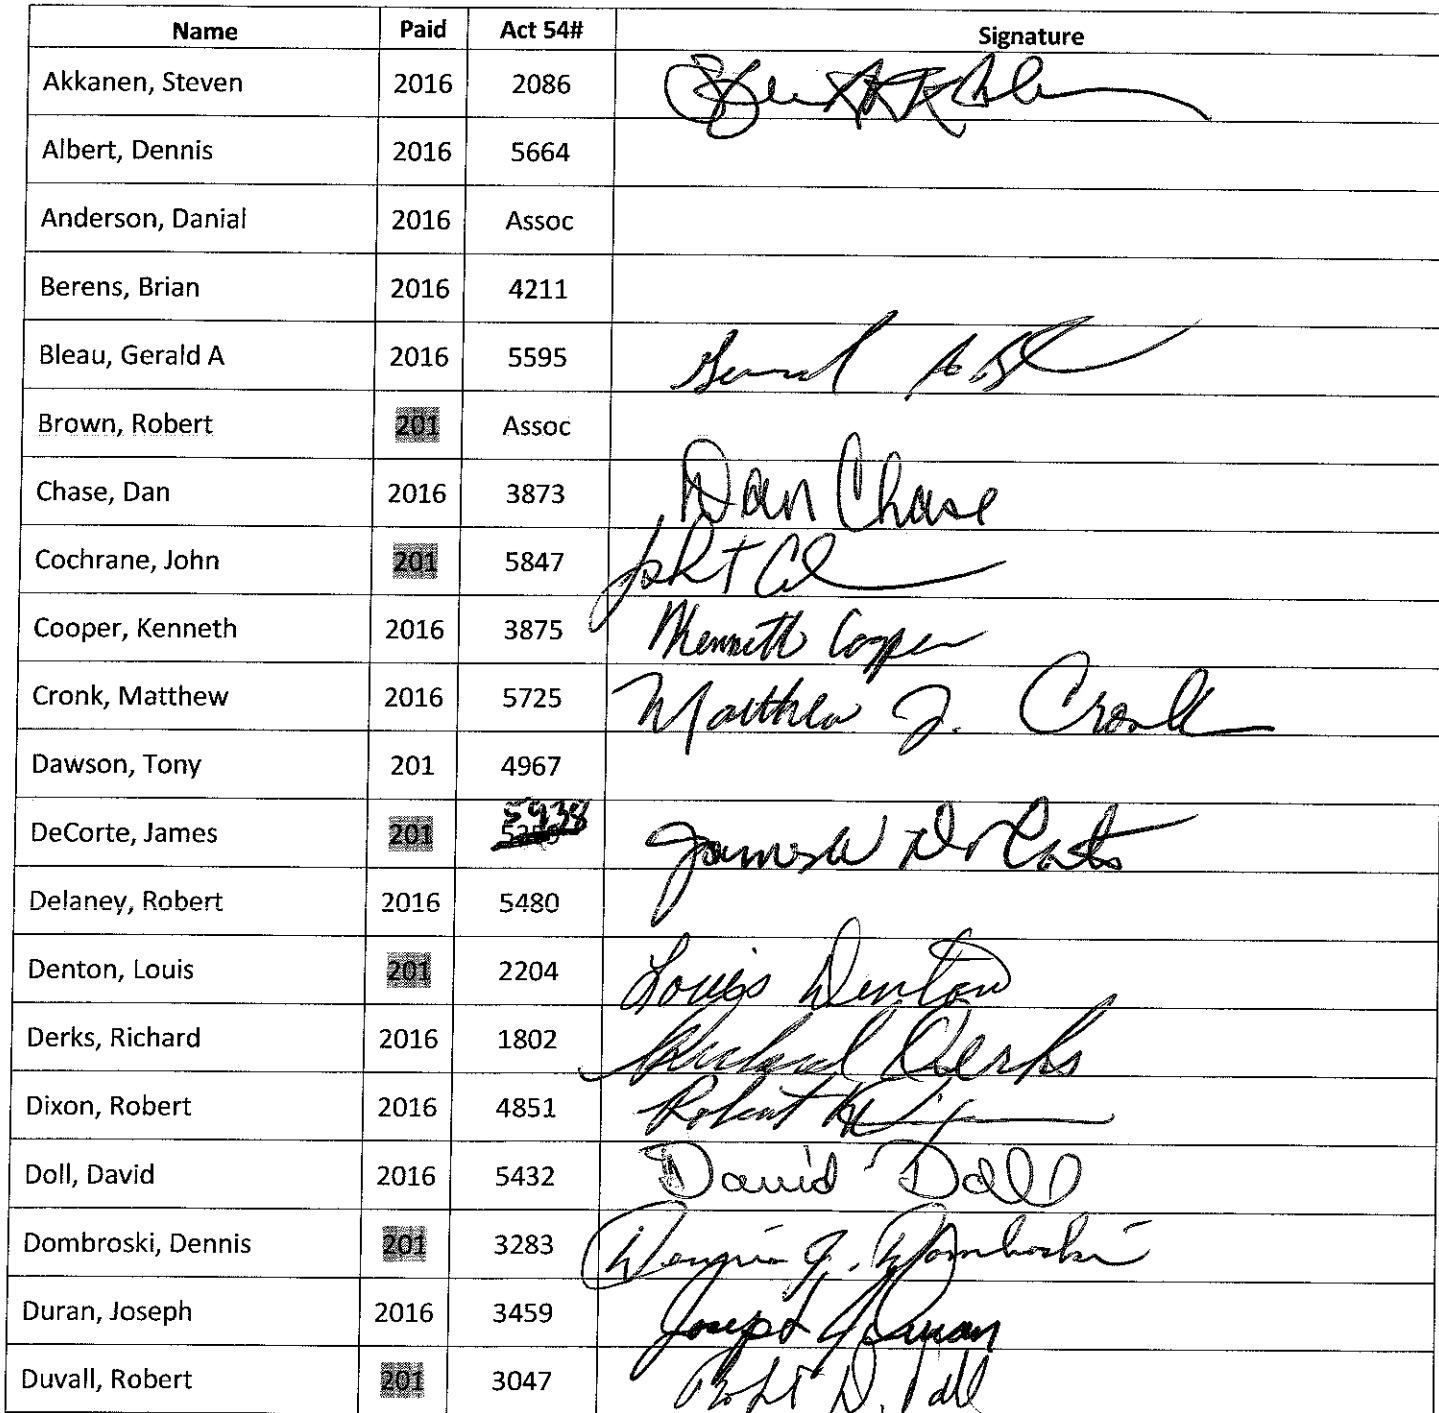 Name Paid Act 54# Signature
Akkanen, Steven 2016 2086
Albert, Dennis 2016 5664
Anderson, Danial 2016 Assoc
Berens, Brian 2016 4211
Bleau, Gerald A 2016 5595
Brown, Robert 201 Assoc
Chase, Dan 2016 3873 Dan Chase
Cochrane, John 201 5847
Cooper, Kenneth 2016 3875 Kenneth Cooper
Cronk, Matthew 2016 5725 Matthew J. Cronk
Dawson, Tony 201 4967
DeCorte, James 201 5938 James W DeCorte
Delaney, Robert 2016 5480
Denton, Louis 201 2204 Louis Denton
Derks, Richard 2016 1802 Richard Derks
Dixon, Robert 2016 4851 Robert
Doll, David 2016 5432 David Doll
Dombroski, Dennis 201 3283 Dennis J. Dombroski
Duran, Joseph 2016 3459 Joseph J Duran
Duvall, Robert 201 3047